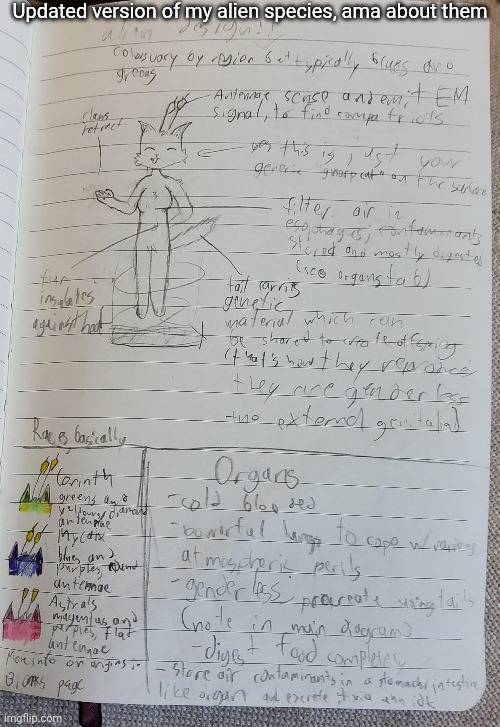 Updated version of my alien species, ama about them
alien design!!
Colors vary by region but typically blues and
greens
Antennae sense and emit EM
signal, to find compatriots
claws
retract
yes this is just your
generic "gnarpcat" on the surface
filter air in
esophagus, contaminants
stored and mostly digested
(see organs tab)
fur
insulates
against heat
tail carries
genetic
material which can
be shared to create offspring
(that's how they reproduce
they are genderless
+no external genitalia)
Races basically
Corinth
greens and
yellows diamond
antennae
blues and
purples, round
antennae
Astrals
magentas and
purples, flat
antennae
More info on origins in
Biomes page
Organs
- cold blooded
- powerful lungs to cope w/ various
atmospheric perils
- genderless, procreate using tails
(note in main diagram)
- digest food completely
- Store air contaminants in a stomach/intestine
like organ and excrete it via idk
imgflip.com